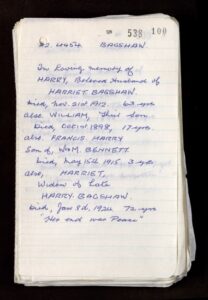 538 100
D2 4454 BAGSHAW
In Loving memory of
HARRY, Beloved Husband of
HARRIET BAGSHAW.
Died, Nov. 21st 1912. 63 yrs
also WILLIAM, Third Son
Died, Oct 1st 1898, 17 yrs.
also, FRANCIS HARRY
Son of, W&M. BENNETT.
Died, May 15th 1915 3 yrs
also, HARRIET,
Widow of Late
HARRY. BAGSHAW
Died, Jan 8d, 1924 72 yrs
"His end was Peace"